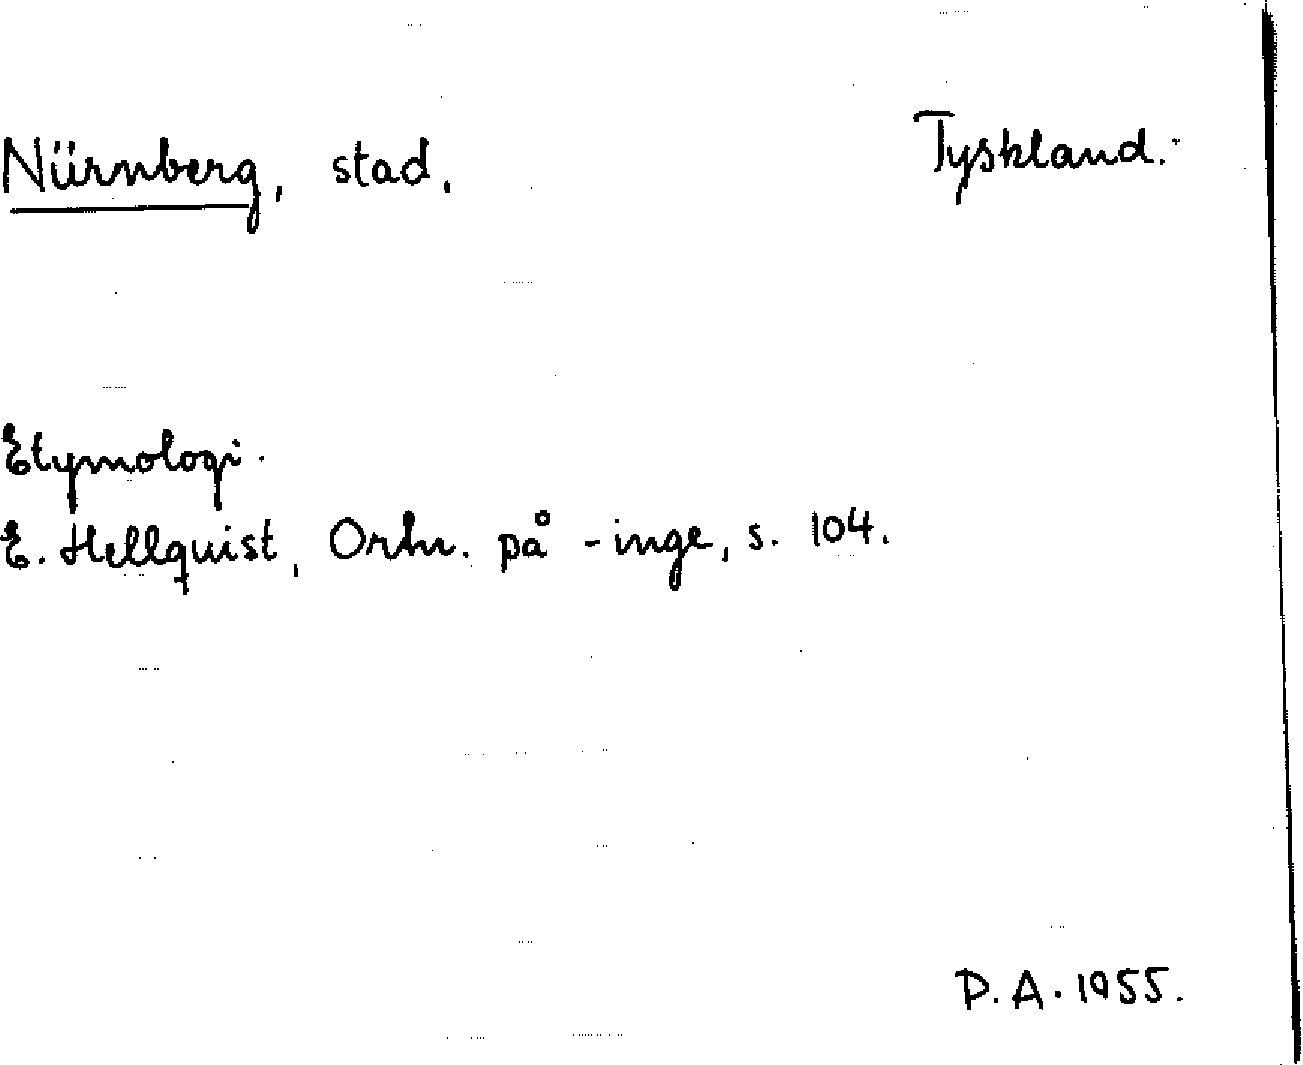 Nürnberg, stad. Tyskland.
Etymologi.
E. Hellquist, Ortn. på -inge, s. 104.
D.A. 1955.